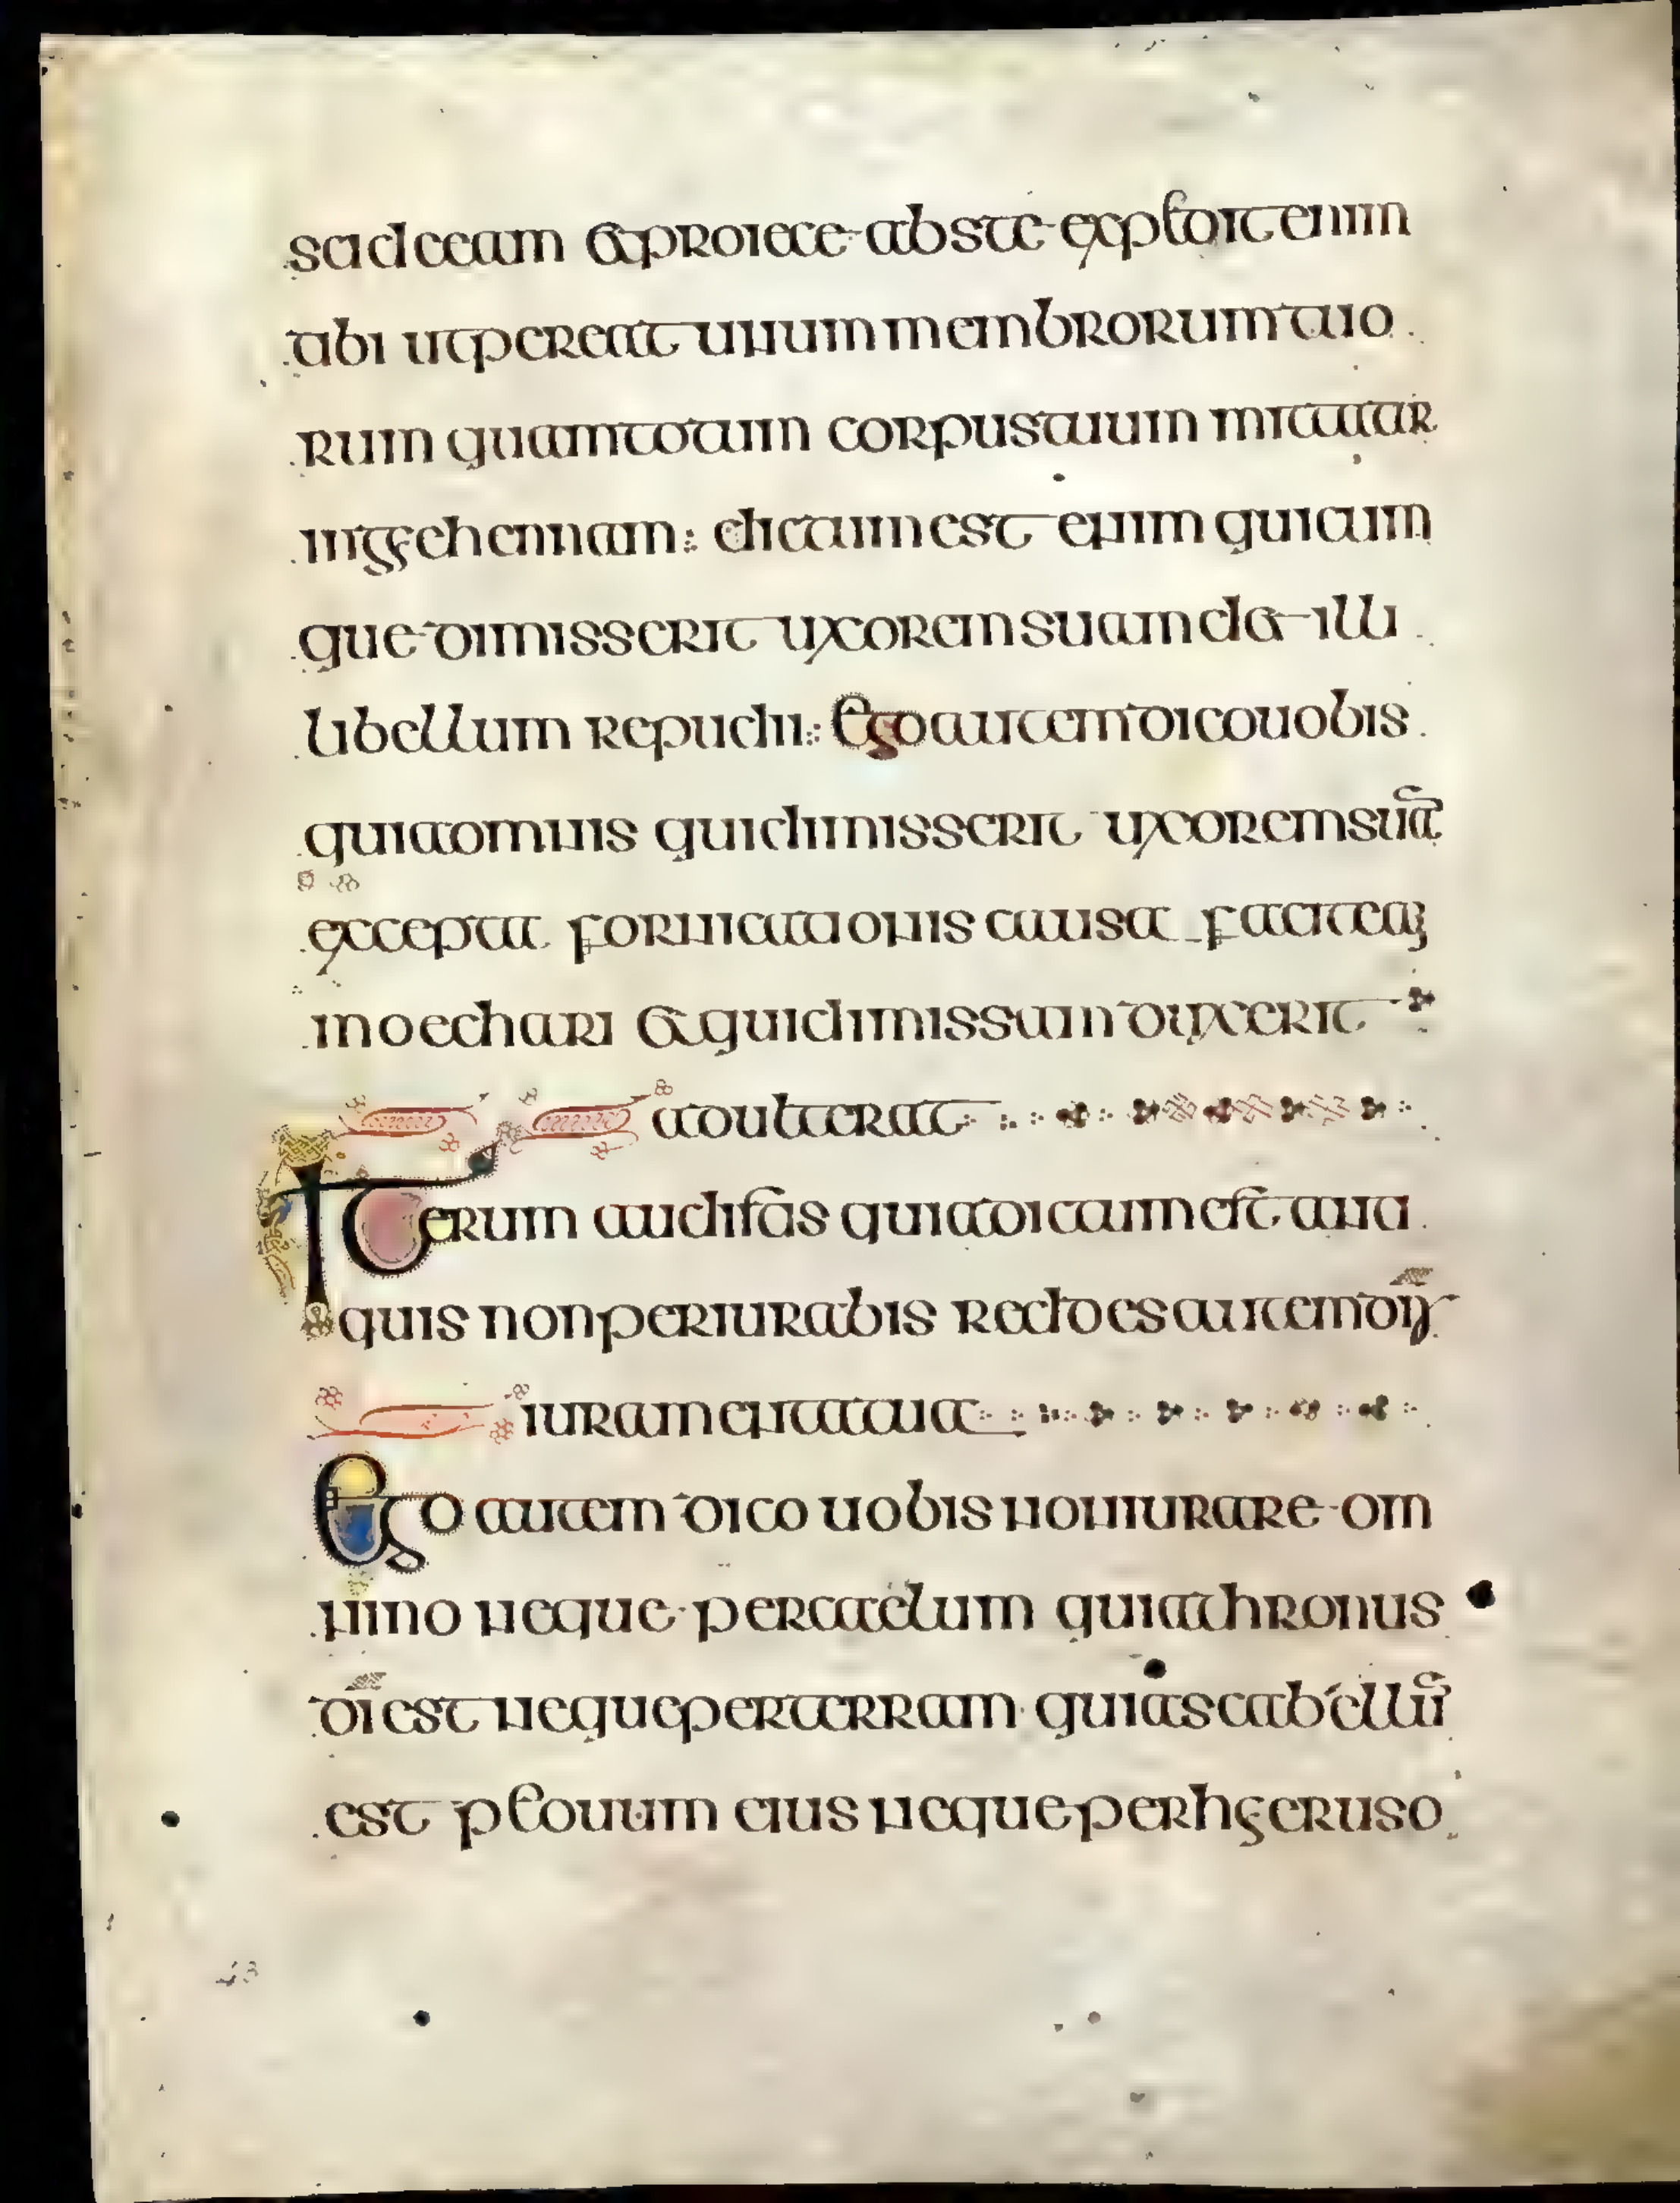 scidae eam & proiece abs te expedit enim
tibi ut pereat unum membrorum tuo
rum quam totum corpus tuum mittatur
in gehennam: dictum est enim quicum
que dimisserit uxorem suam det illi
libellum repudii: Ego autem dico uobis
quia omnis qui dimisserit uxorem suā
excepta fornicationis causa facit eā
moechari & qui dimissam duxerit
adulterat
Iterum audistis quia dictum est anti
quis non periurabis reddes autem dn̄o
iuramenta tua
Ego autem dico uobis non iurare om
nino neque per caelum quia thronus
dī est neque per terram quia scabellū
est pedum eius neque per hieruso